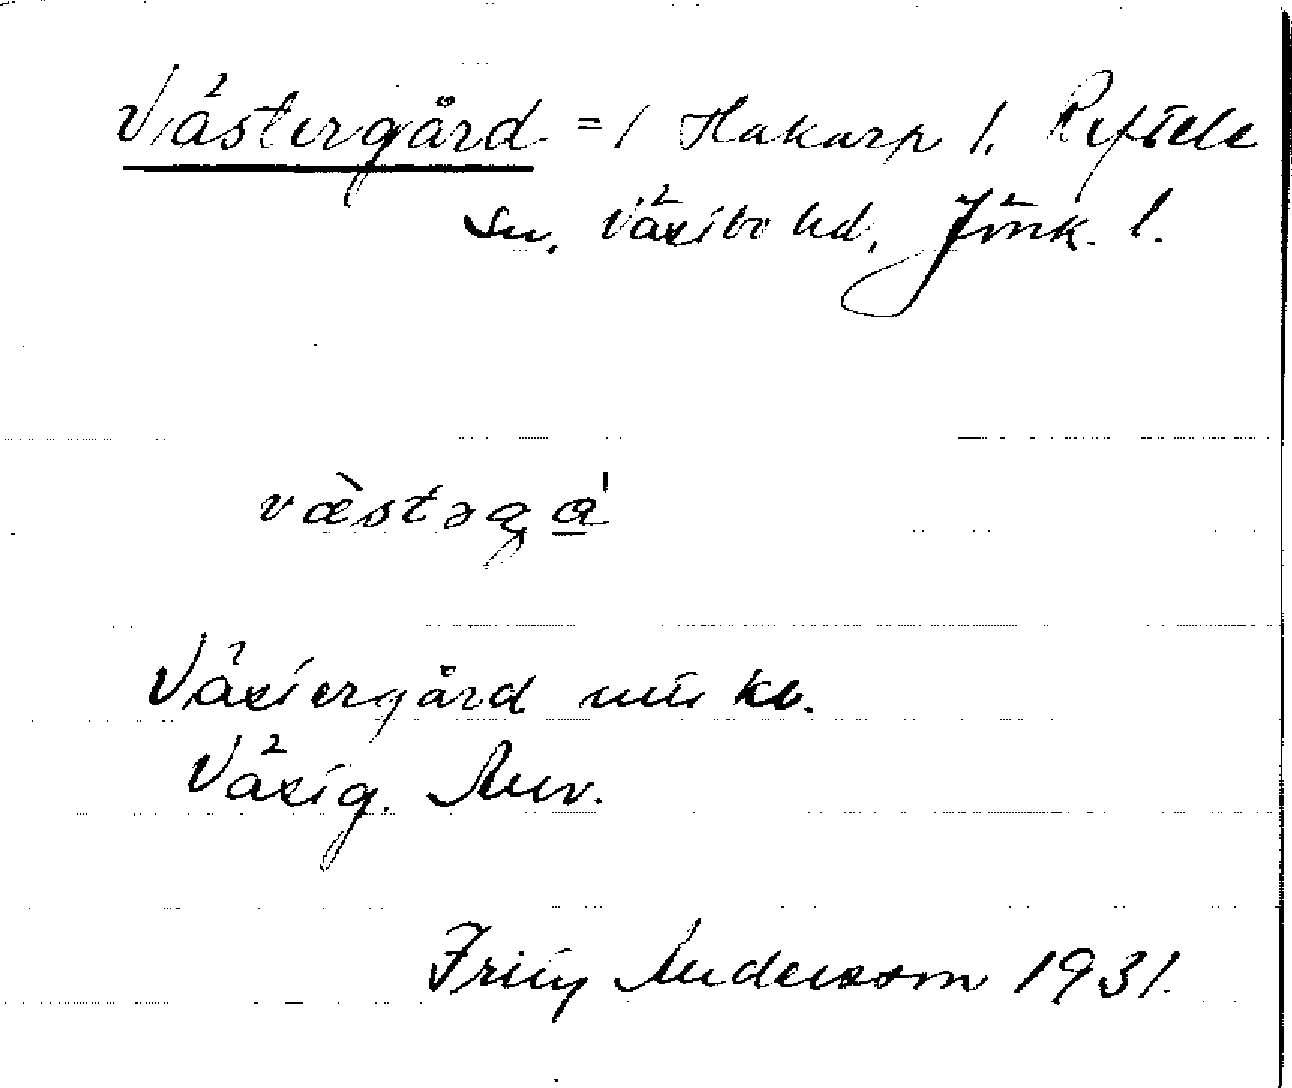 Västergård = 1 Hakarp 1. Reftele
Sn. Västbo hd, Jönk. l.
væ̀stəga̱ˈ
Västergård mtl kb.
Västg.
Fritz Andersson 1931.